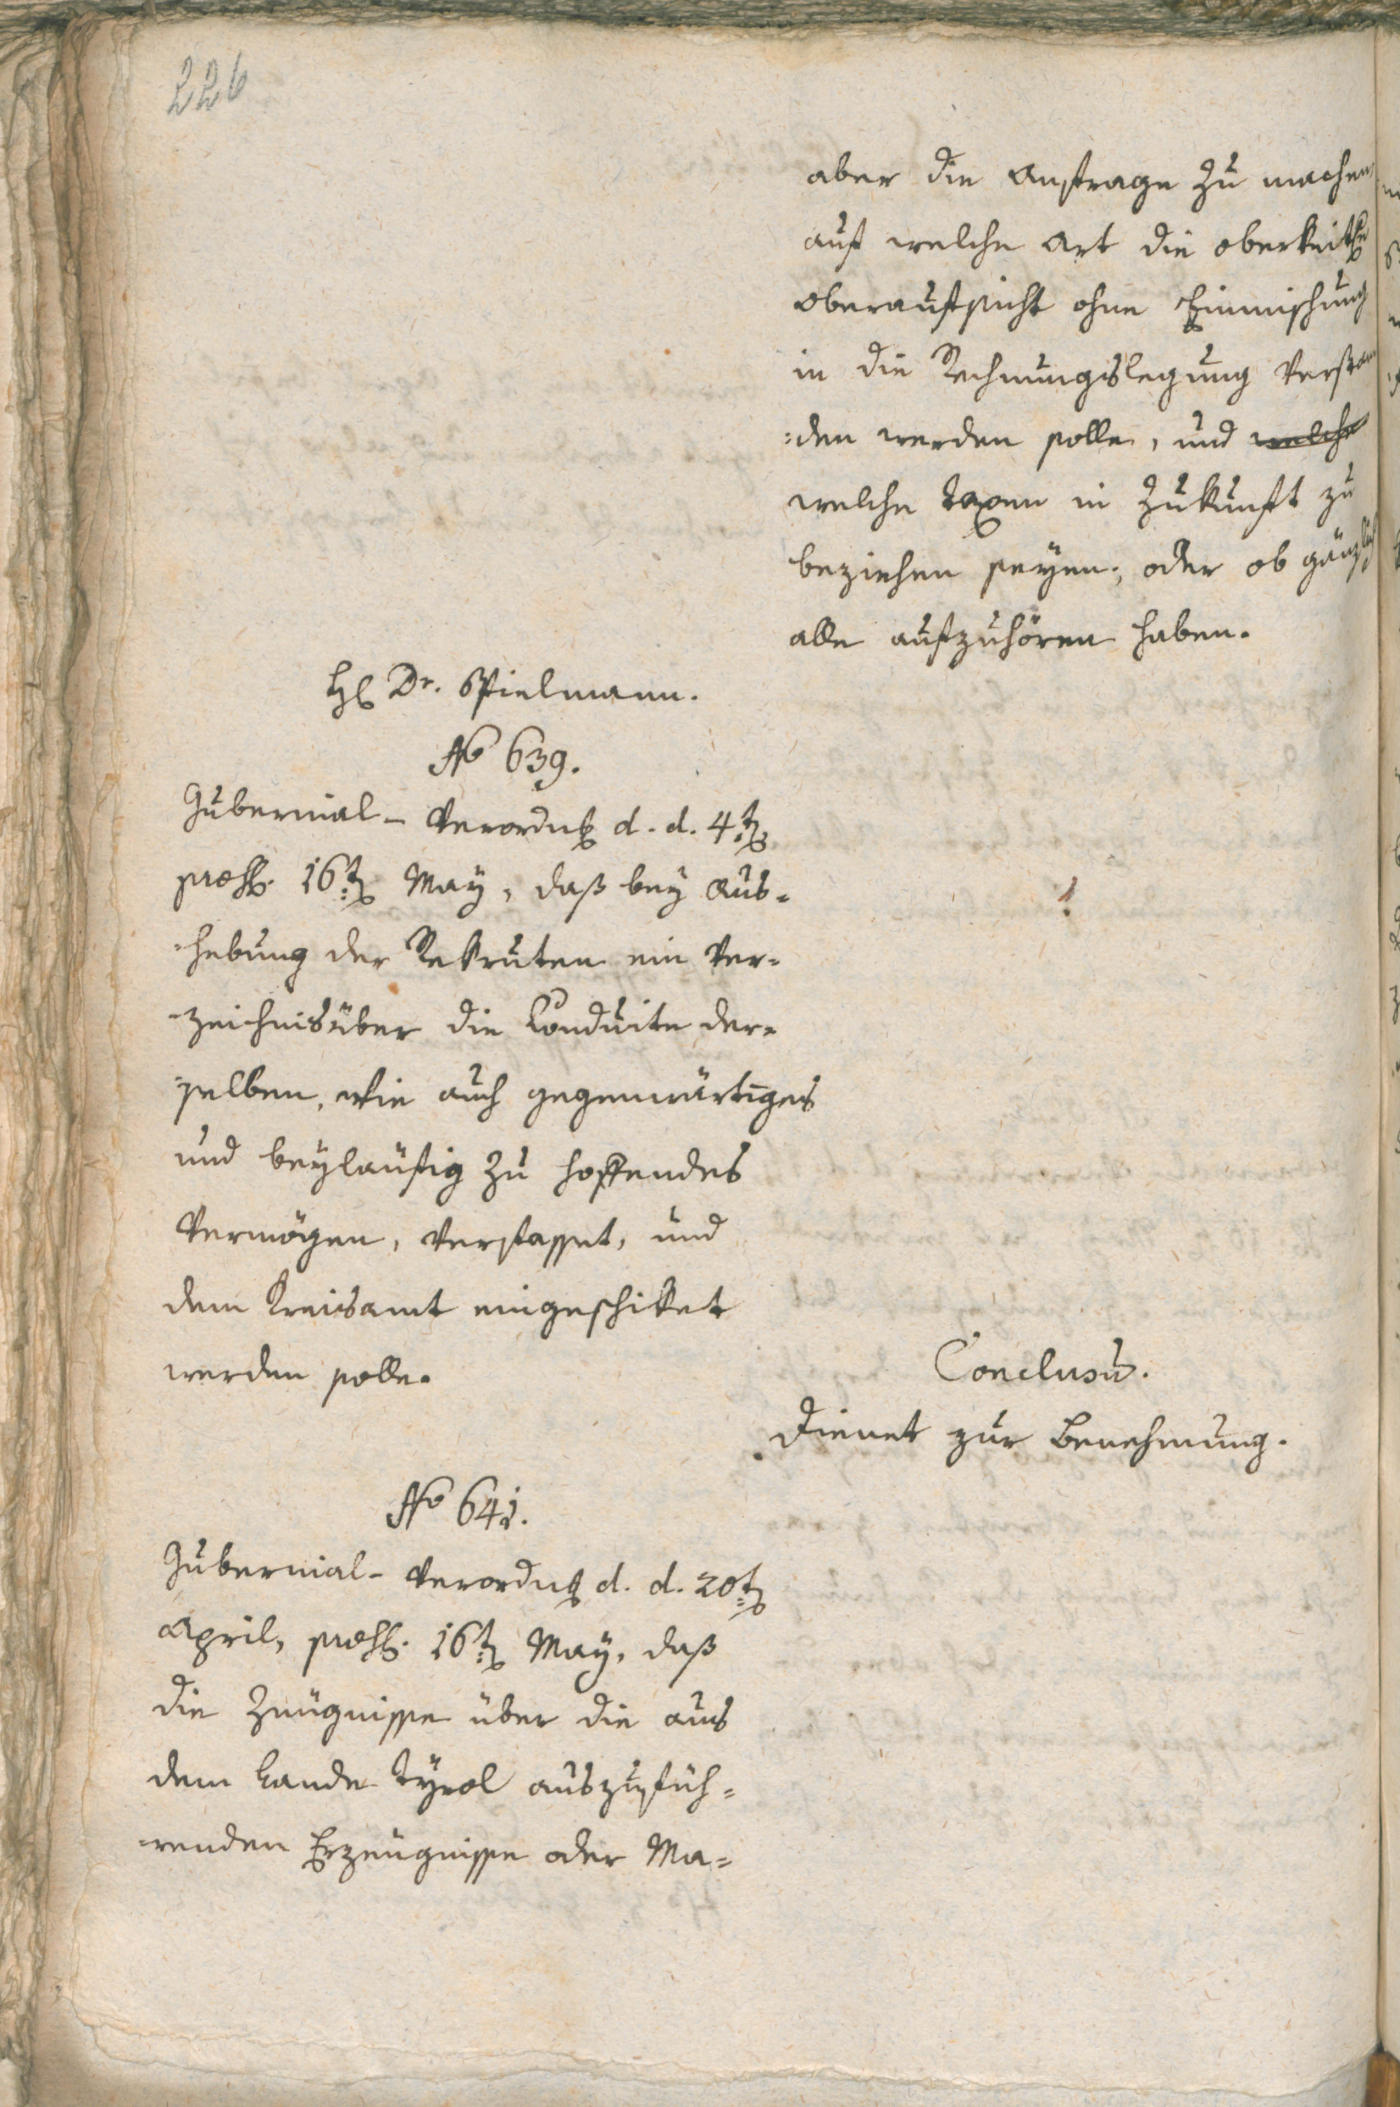 226
aber die Anfrage zu machen,
auf welche Art die oberkeitl.
Oberaufsicht ohne Einmischung
in die Rechnungslegung verstan
:den werden solle, und welche
welche Taxen in Zukunft zu
beziehen seÿen; oder ob gänzlich
alle aufzuhören haben.
H. Dr. Spielmann.
No 639.
Gubernial- Verordng d. d. 4t.
præs. 16t. Maÿ, daß beÿ Aus-
-hebung der Rekruten ein Ver-
-zeichnis über die Conduite der-
-selben, wie auch gegenwärtiges
und beÿläufig zu hoffendes
Vermögen, verfasset, und
dem Kreisamt eingeschiket
werden solle.
Conclusũ.
Dienet zur Benehmung.
No 641.
Gubernial- Verordng d. d. 20t.
April, præs. 16t. Maÿ, daß
die Zeugnisse über die aus
dem Lande Tÿrol auszufüh-
-renden Erzeugnisse oder Ma-